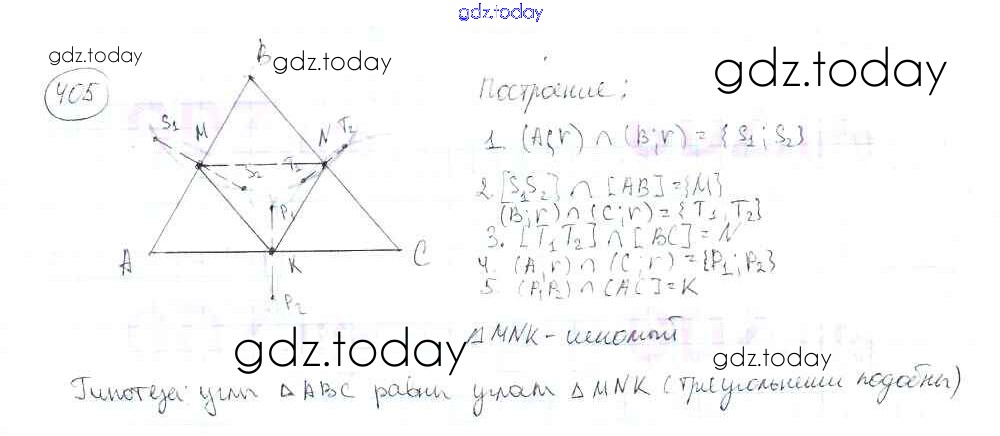 gdz.today
gdz.today
gdz.today
gdz.today
405
B
S1
M
N
T2
S2
T1
P1
A
K
C
P2
Построение:
1. (A;r) ∩ (B;r) = {S1; S2}
2. [S1S2] ∩ [AB] = {M}
(B;r) ∩ (C;r) = {T1, T2}
3. [T1T2] ∩ [BC] = N
4. (A,r) ∩ (C;r) = {P1; P2}
5. (P1P2) ∩ [AC] = K
△MNK - искомый
gdz.today
gdz.today
Гипотеза: углы △ABC равны углам △MNK (треугольники подобны)